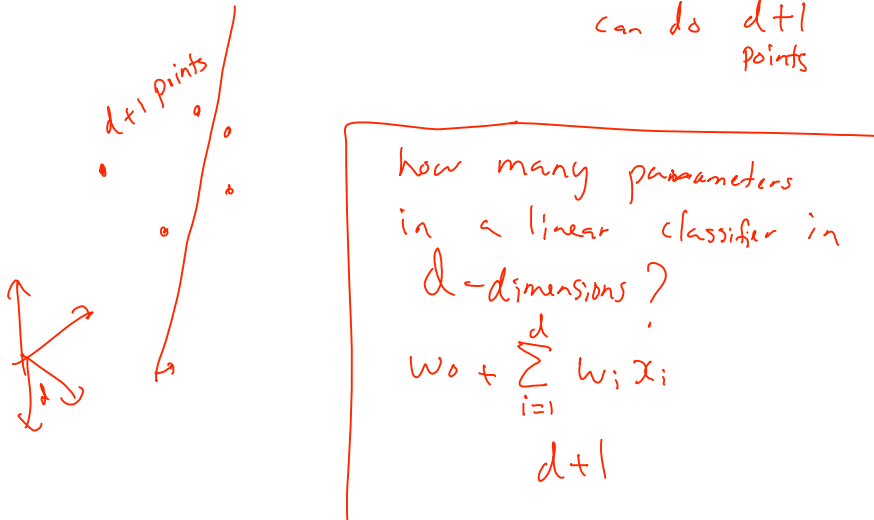 can do d+1
points
d+1 points
how many parameters
in a linear classifier in
d-dimensions?
w₀ + ∑ᵢ₌₁ᵈ wᵢ xᵢ
d+1
d